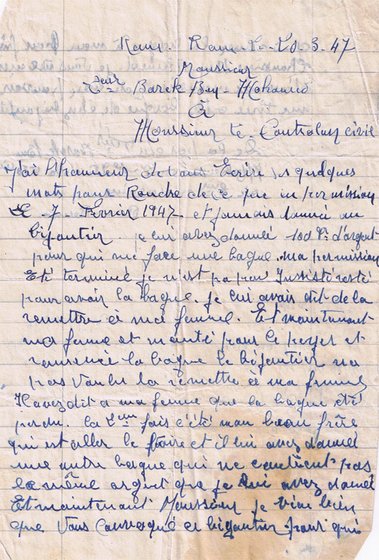 20-3-47
Monssieur
Barek Ben Mohamed
À
Monssieur le Controleur civil
J'ai l'honneur Ecrire ses quelques
mots pour Rendre permission
Le 7 - Fevrier 1947 - et
bijoutier je lui avez donnée 100 d'argent
pour qui me face une bague. ma permission
Eté terminé je n'est pas resté
pour avoir la bague. je lui avais dit de la
remettre a ma femme. Et maintenant
ma femme et monté pour le
la bague le bijoutier na
pas voulu la remettre a ma femme
Il avez dit a ma femme que la bague été
perdu. la 2eme fois c'été mon beau frêre
qui est aller le et il lui avez donnée
une autre bague qui ne contient pas
la même argent que je lui avez donnée
Et maintenant Monssieur je vien bien
que vous ce bijoutier pour qui